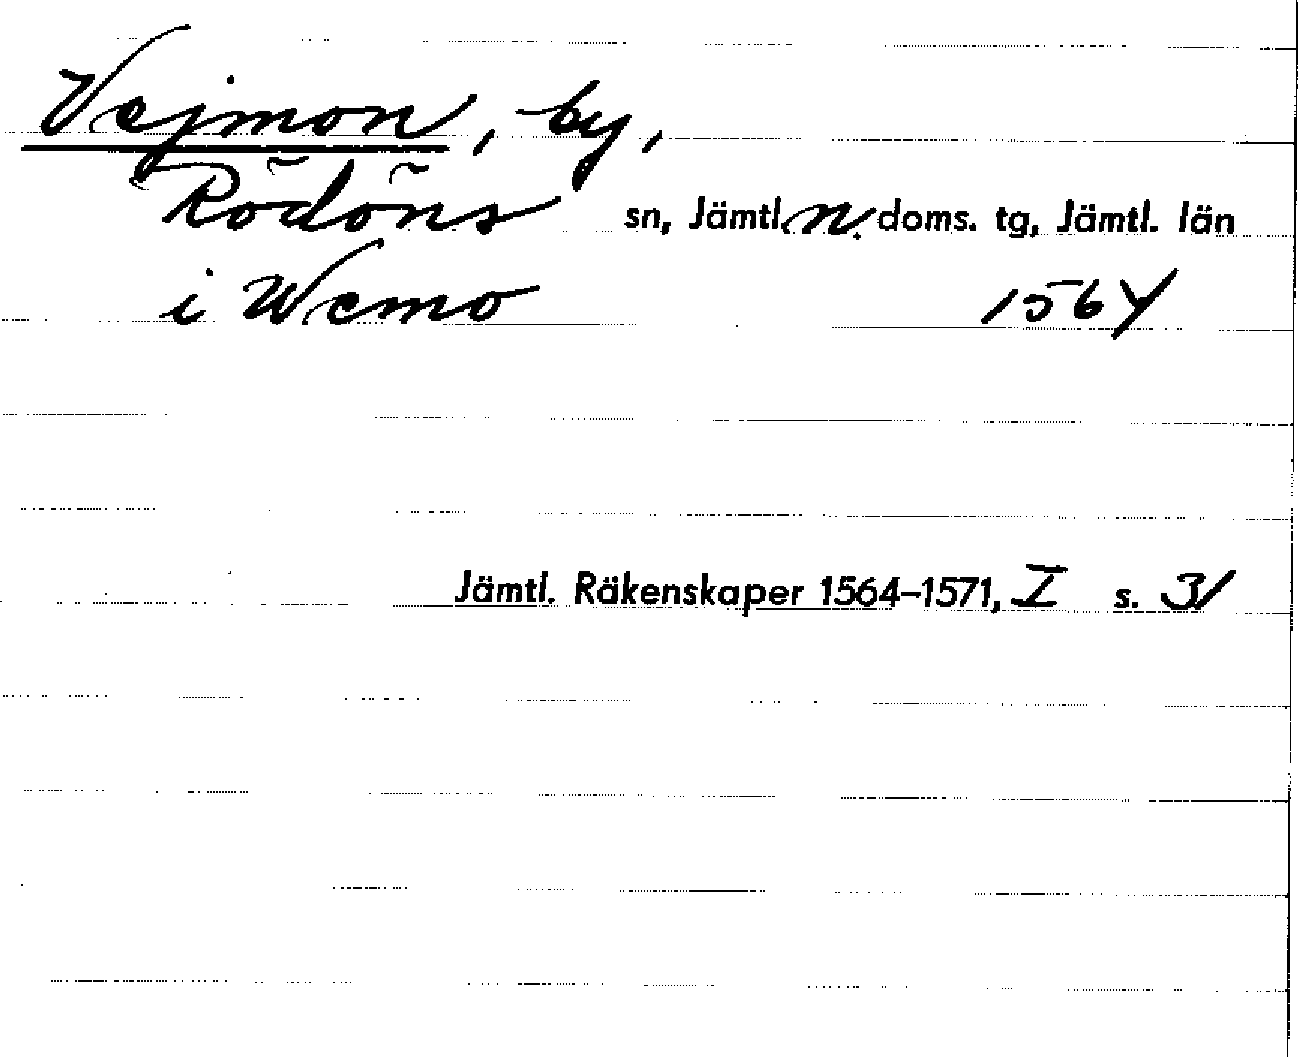 Vejmon, by,
Rödöns sn, Jämtl. n. doms. tg, Jämtl. län
i Wemo 1564
Jämtl. Räkenskaper 1564–1571, I s. 31